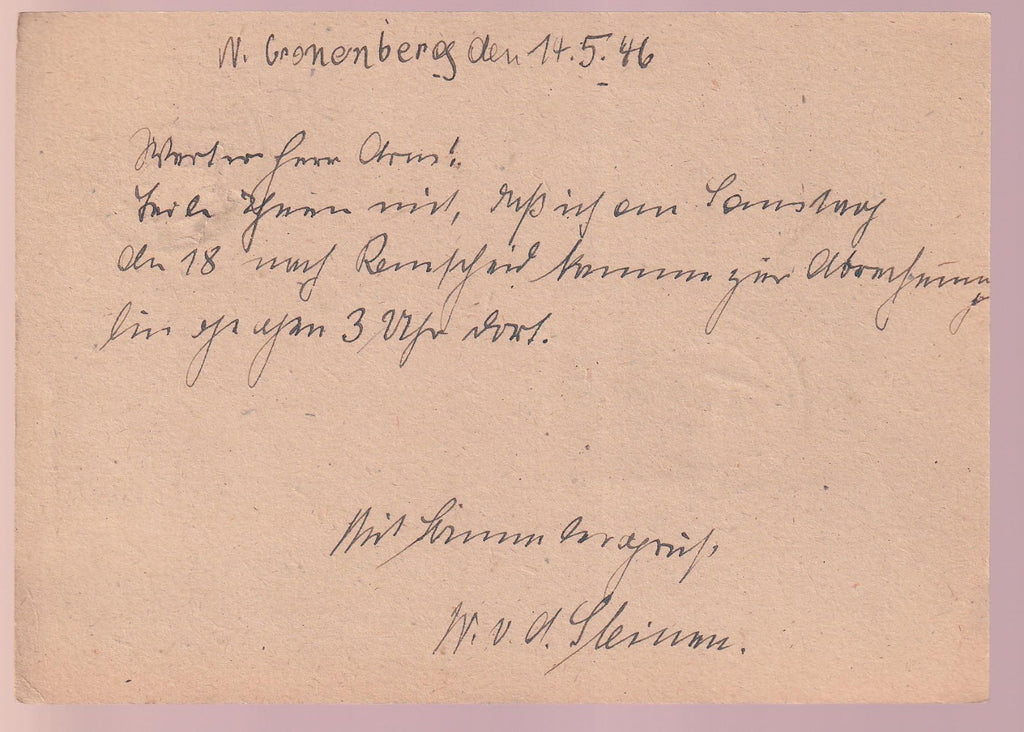 W. Cronenberg den 14.5.46
Werter Herr Arm!
Teile Ihnen mit, daß ich am Samstag
den 18 nach Remscheid komme zur Abrechnung
bin gegen 3 Uhr dort.
Mit
W. v. d. Steinen.